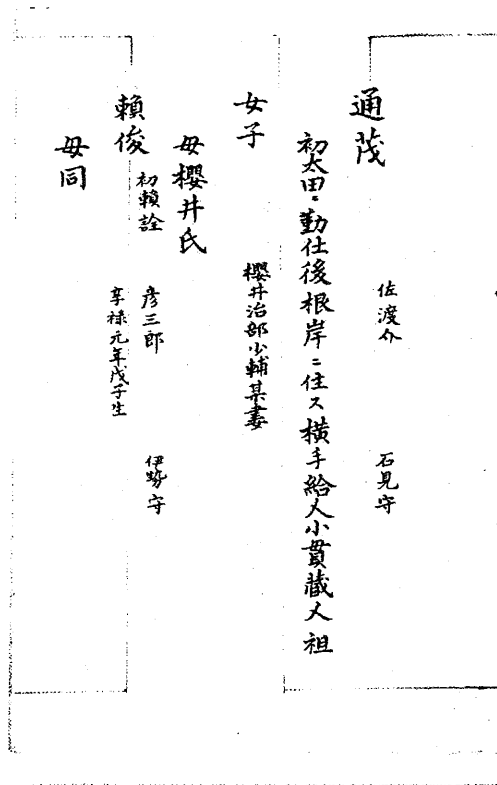 通茂　佐渡介　石見守
初太田ニ勤仕後根岸ニ住ス横手給人小貫蔵人祖
女子　櫻井治部少輔某妻
母櫻井氏
頼俊　初頼詮　彦三郎　伊勢守
享禄元年戊子生
母同